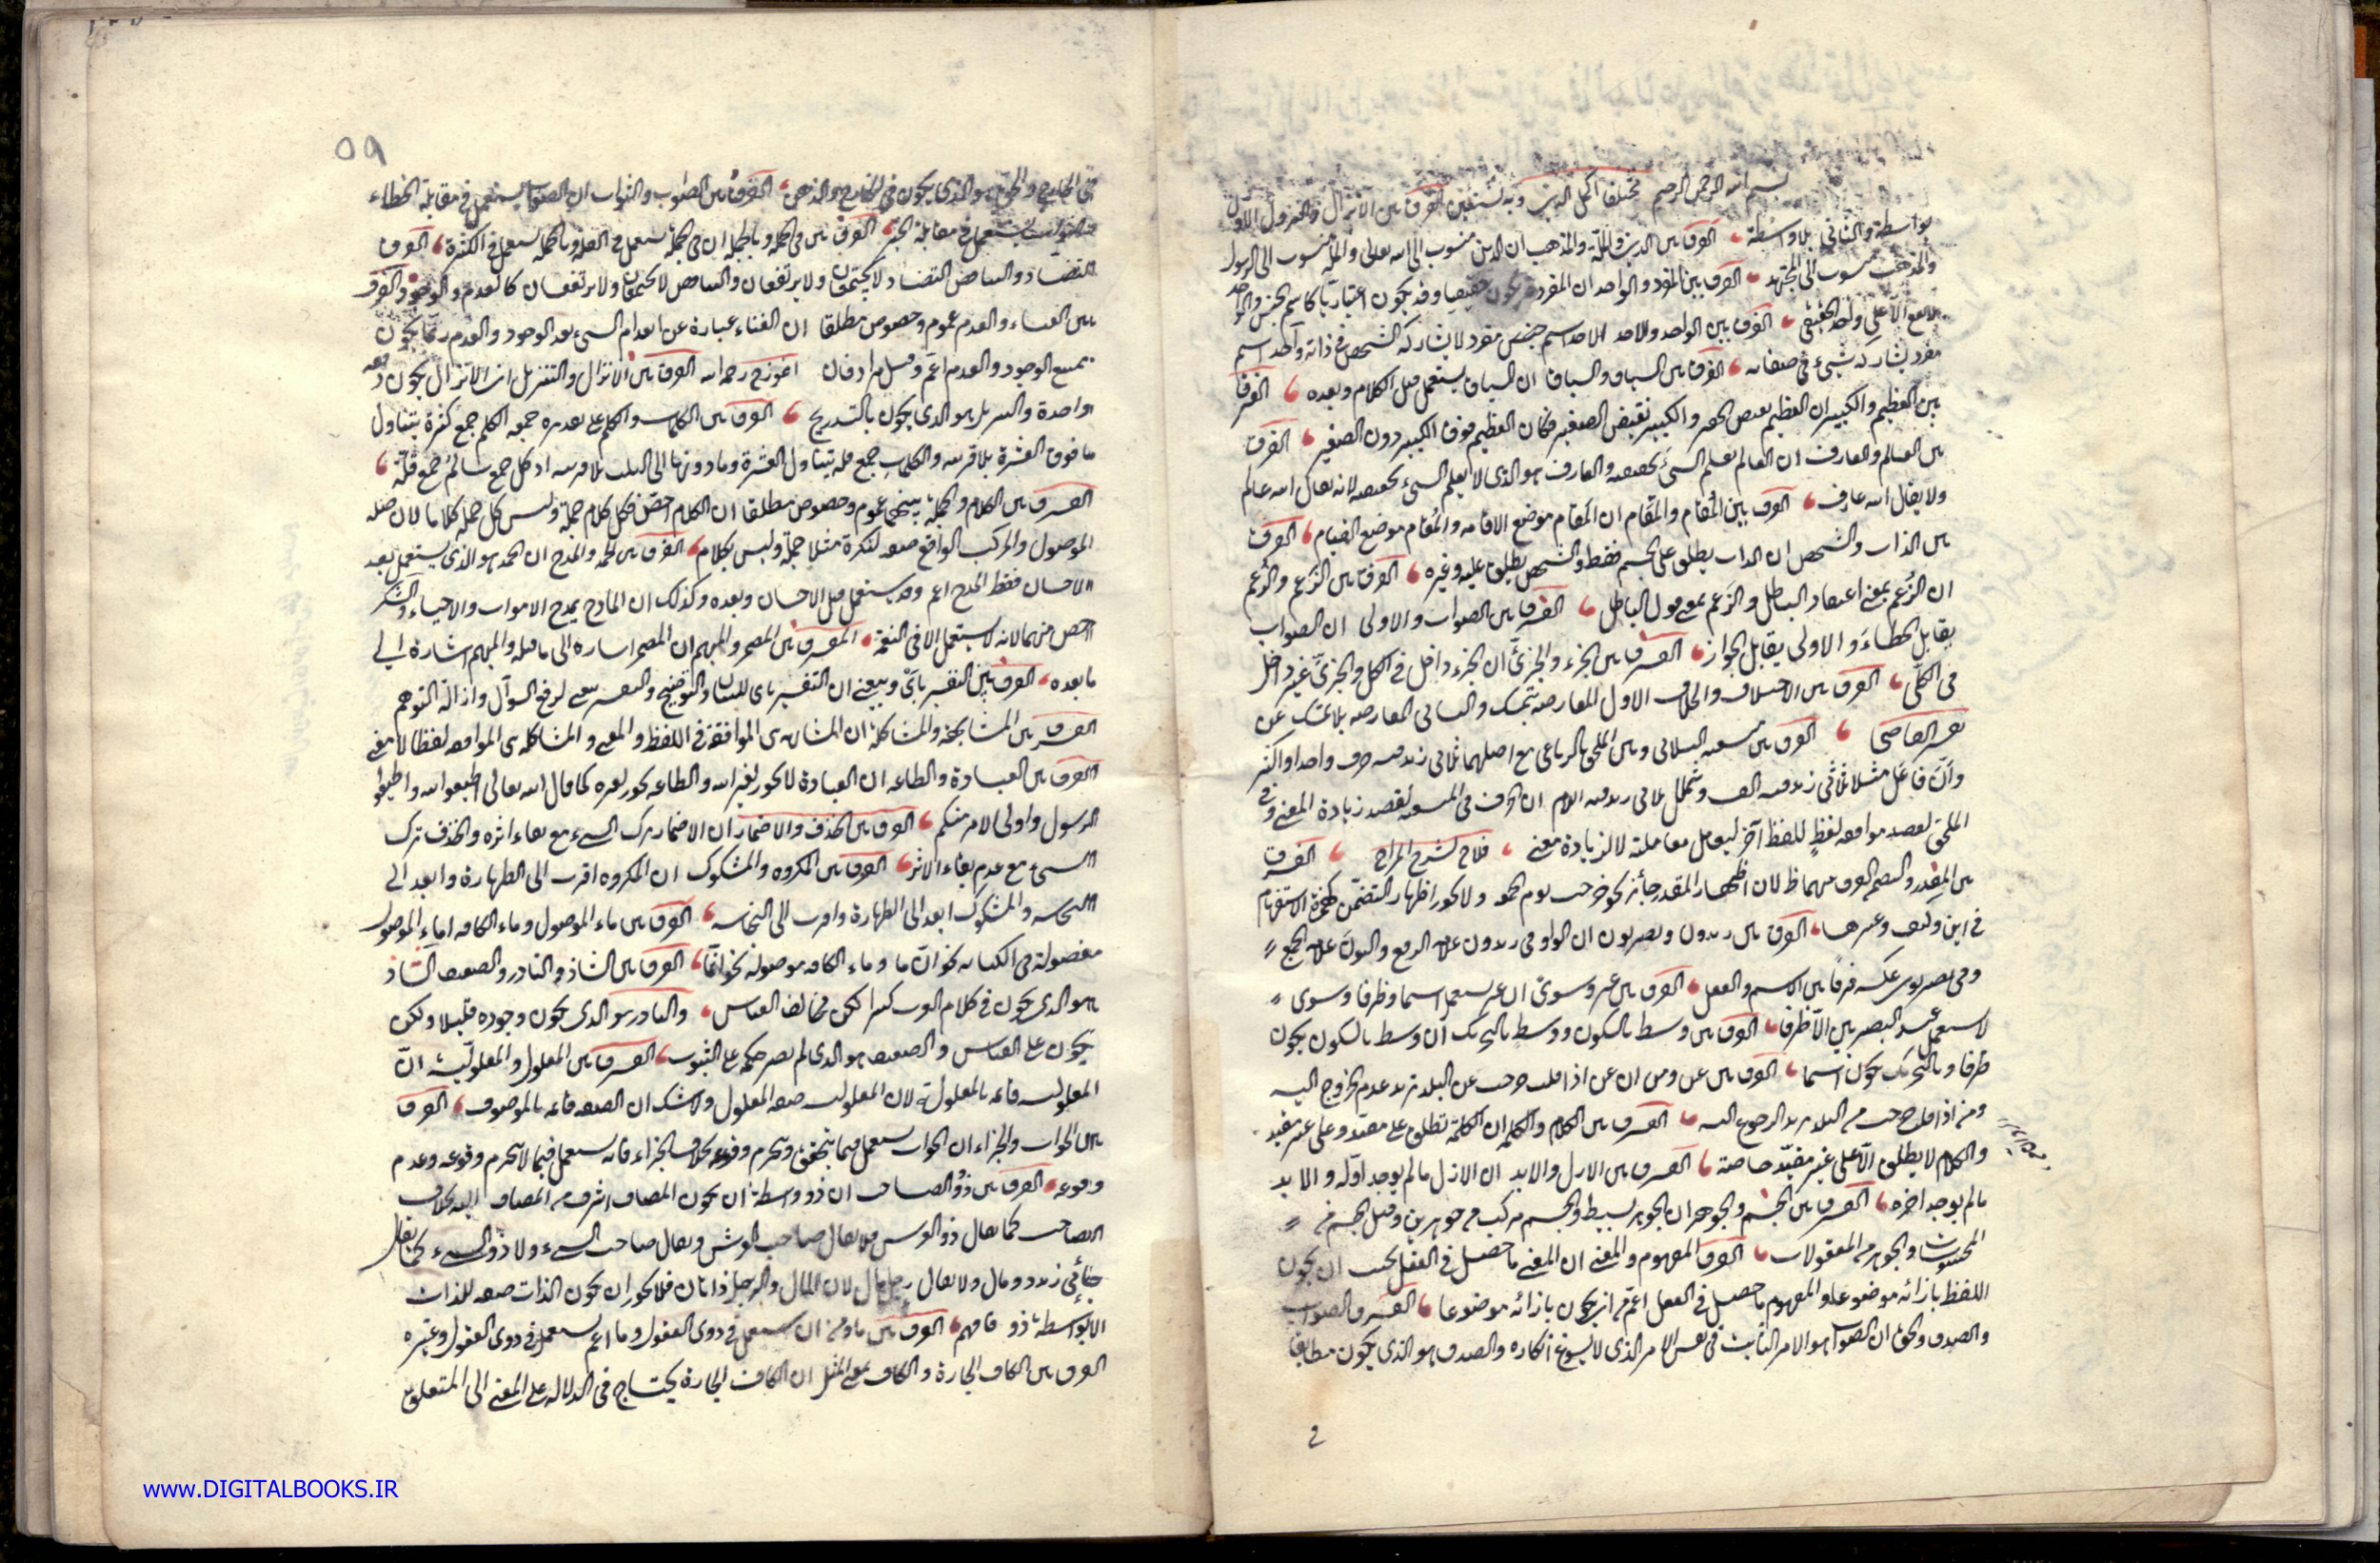 بسم الله الرحمن الرحيم مختلفات اكمل الدين وبه نستعين الفرق بين الانزال والنزول الاول
بواسطة والثاني بلا واسطة الفرق بين الدين والملة والمذهب ان الدين منسوب الى الله تعالى والملة منسوب الى الرسول
والمذهب منسوب الى المجتهد الفرق بين المفرد والواحد ان المفرد قد يكون حقيقيا وقد يكون اعتباريا كاسم الجنس والواحد
لا يقع الا على واحد الحقيقي الفرق بين الواحد والاحد الاحد اسم جنس مفرد لا يشاركه الشخص في ذاته والاحد اسم
مفرد يشاركه شيء في صفاته الفرق بين السباق والسياق ان السياق يستعمل قبل الكلام وبعده الفرق
بين العظيم والكبير ان العظيم نقيض الحقير والكبير نقيض الصغير فكان العظيم فوق الكبير دون الصغير الفرق
بين العالم والعارف ان العالم يعلم الشيء بحقيقته والعارف هو الذي لا يعلم الشيء بحقيقته لانه يقال الله عالم
ولا يقال الله عارف الفرق بين المُقام والمَقام ان المَقام موضع الاقامه والمُقام موضع القيام الفرق
بين الذات والشخص ان الذات يطلق على الجسم فقط والشخص يطلق عليه وغيره الفرق بين الزَعم والزُعم
ان الزُعم بمعنى اعتقاد الباطل والزَعم بمعنى قول الباطل الفرق بين الصواب والاولى ان الصواب
يقابل الخطاء والاولى يقابل الجواز الفرق بين الجزء والجزئي ان الجزء داخل في الكل والجزئي غير داخل
في الكلي الفرق بين الاختلاف والخلاف الاول المعارضه بتمسك والثاني المعارضه بلا تمسك عن
الفرق بين منشعبه الثلاثي وبين الملحق بالرباعي مع اصلهما ثلاثي زيد فيه حرف واحد او اكثر
وان فاعل مثلا ثلاثي زيد فيه الف وشملل ثلاثي زيد فيه اللام ان الحرف في المنشعبه لقصد زيادة المعنى وفي
الملحق لقصد موافقه لفظ للفظ آخر ليعامل معاملته لا لزيادة معنى فلاح لشرح المراح الفرق
بين المقدر والمتضمن الفرق بينهما ظ لان اظهار المقدر جائز نحو خرجت يوم الجمعه ولا يجوز اظهار المتضمن كهمزة الاستفهام
في اين وكيف وغيرها الفرق بين زيدون ويضربون ان الواو في زيدون علامة الرفع والنون علامة الجمع
وفي يضربون عكسه فرقا بين الاسم والفعل الفرق بين غير وسوى ان غير يستعمل اسما وظرفا وسوى
لا يستعمل عند البصريين الا ظرفا الفرق بين وسط بالسكون ووسط بالتحريك ان وسط بالسكون يكون
ظرفا وبالتحريك يكون اسما الفرق بين عن ومن ان عن اذا قلت خرجت عن البلد تريد عدم الخروج اليه
ومن اذا قلت خرجت من البلد تريد الرجوع اليه الفرق بين الكلام والكلمه ان الكلمة تطلق على مفيد وعلى غير مفيد
والكلام لا يطلق الا على غير مفيد خاصة الفرق بين الازل والابد ان الازل ما لم يوجد اوله والابد
ما لم يوجد اخره الفرق بين الجسم والجوهر ان الجوهر بسيط والجسم مركب من جوهرين وقيل الجسم من
المحسوسات والجوهر من المعقولات الفرق المفهوم والمعنى ان المعنى ما حصل في العقل بحسب ان يكون
اللفظ بازائه موضوعا والمفهوم ما حصل في العقل اعم من ان يكون بازائه موضوعا الفرق الصواب
والصدق والحق ان الصواب هو الامر الثابت في نفس الامر الذي لا يسوغ انكاره والصدق هو الذي يكون مطابقا
٥٩
في الخارج والحق هو الذي يكون في الخارج والذهن الفرق بين الصواب والثواب ان الصواب يستعمل في مقابلة الخطاء
والثواب يستعمل في مقابلة الفرق بين في الجمله وبالجمله ان في الجملة يستعمل في القلة وبالجمله يستعمل في الكثرة الفرق
التضاد والتناقض التضاد لا يجتمعان ولا يرتفعان والتناقض لا يجتمعان ولا يرتفعان كالعدم والوجود الفرق
بين الفناء والعدم عموم وخصوص مطلقا ان الفناء عبارة عن انعدام الشيء بعد الوجود والعدم ربما يكون
ممتنع الوجود والعدم اعم وقيل مرادفان انموزج رحمه الله الفرق بين الانزال والتنزيل ان الانزال يكون دفعه
واحدة والتنزيل هو الذي يكون بالتدريج الفرق بين الكلمات والكلم على تقدير جمعه الكلم جمع كثرة يتناول
ما فوق العشرة بلا قرينه والكلمات جمع قله يتناول العشرة وما دونها الى الثلث بلا قرينه اذ كل جمع سالم جمع قلة
الفرق بين الكلام والجملة بينهما عموم وخصوص مطلقا ان الكلام اخص فكل كلام جملة وليس كل جمله كلاما لان صله
الموصول والمركب الواقع صفه لنكرة مثلا جملة وليس بكلام الفرق بين الحمد والمدح ان الحمد هو الذي يستعمل بعد
الاحسان فقط المدح اعم وقد يستعمل قبل الاحسان وبعده وكذلك ان المادح يمدح الاموات والاحياء والشكر
اخص منهما لانه لا يستعمل الا في النعمة الفرق بين المضمر والمبهم ان المضمر اشاره الى ما قبله والمبهم اشارة الى
ما بعده الفرق بين التفسير باي وبيعني ان التفسير باي للبيان والتوضيح والتفسير بيعني لدفع السوآل وازالة التوهم
الفرق بين المشابهة والمشاكلة ان المشابهه هي الموافقة في اللفظ والمعنى والمشاكله هي الموافقه لفظا لا معنى
الفرق بين العبادة والطاعه ان العبادة لا يجوز لغير الله والطاعه يجوز لغيره كما قال الله تعالى اطيعوا الله واطيعوا
الرسول واولى الامر منكم الفرق بين الحذف والاضمار ان الاضمار ترك الشيء مع بقاء اثره والحذف ترك
الشيء مع عدم بقاء الاثر الفرق بين المكروه والمشكوك ان المكروه اقرب الى الطهارة وابعد الى
النجاسه والمشكوك ابعد الى الطهارة واقرب الى النجاسه الفرق بين ماء الموصول وماء الكافه ان ماء الموصول
مفصوله في الكتابه نحو ان ما وماء الكافه موصوله نحو انما الفرق بين الشاذ والنادر والضعيف الشاذ
هو الذي يكون في كلام العرب كثيرا لكن مخالف القياس والنادر هو الذي يكون وجوده قليلا ولكن
يكون على القياس والضعيف هو الذي لم يصر حكمه على الثبوت الفرق بين المعلول والمعلولية ان
المعلوليه قائمه بالمعلول لان المعلوليه صفه المعلول ولا شك ان الصفه قائمه بالموصوف الفرق
بين الجواب والجزاء ان الجواب يستعمل فيما يتحقق ويجزم وقوعه بخلاف الجزاء فانه يستعمل فيما لا يجزم وقوعه وعدم
وقوعه الفرق بين ذو الصاحب ان ذو واسطة ان يكون المضاف اشرف من المضاف اليه بخلاف
الصاحب كما يقال ذو العرش ولا يقال صاحب العرش ويقال صاحب الشيء ولا ذو الشيء كما يقال
جائني زيد ذو مال ولا يقال رجل مال لان المال والرجل ذاتان فلا يجوز ان يكون الذات صفه للذات
الا بواسطة ذو فافهم الفرق بين ما ومن ان من يستعمل في ذوي العقول وما اعم يستعمل في ذوي العقول وغيره
الفرق بين الكاف الجارة والكاف بمعنى المثل ان الكاف الجارة يحتاج في الدلاله على المعنى الى المتعلق
www.DIGITALBOOKS.IR